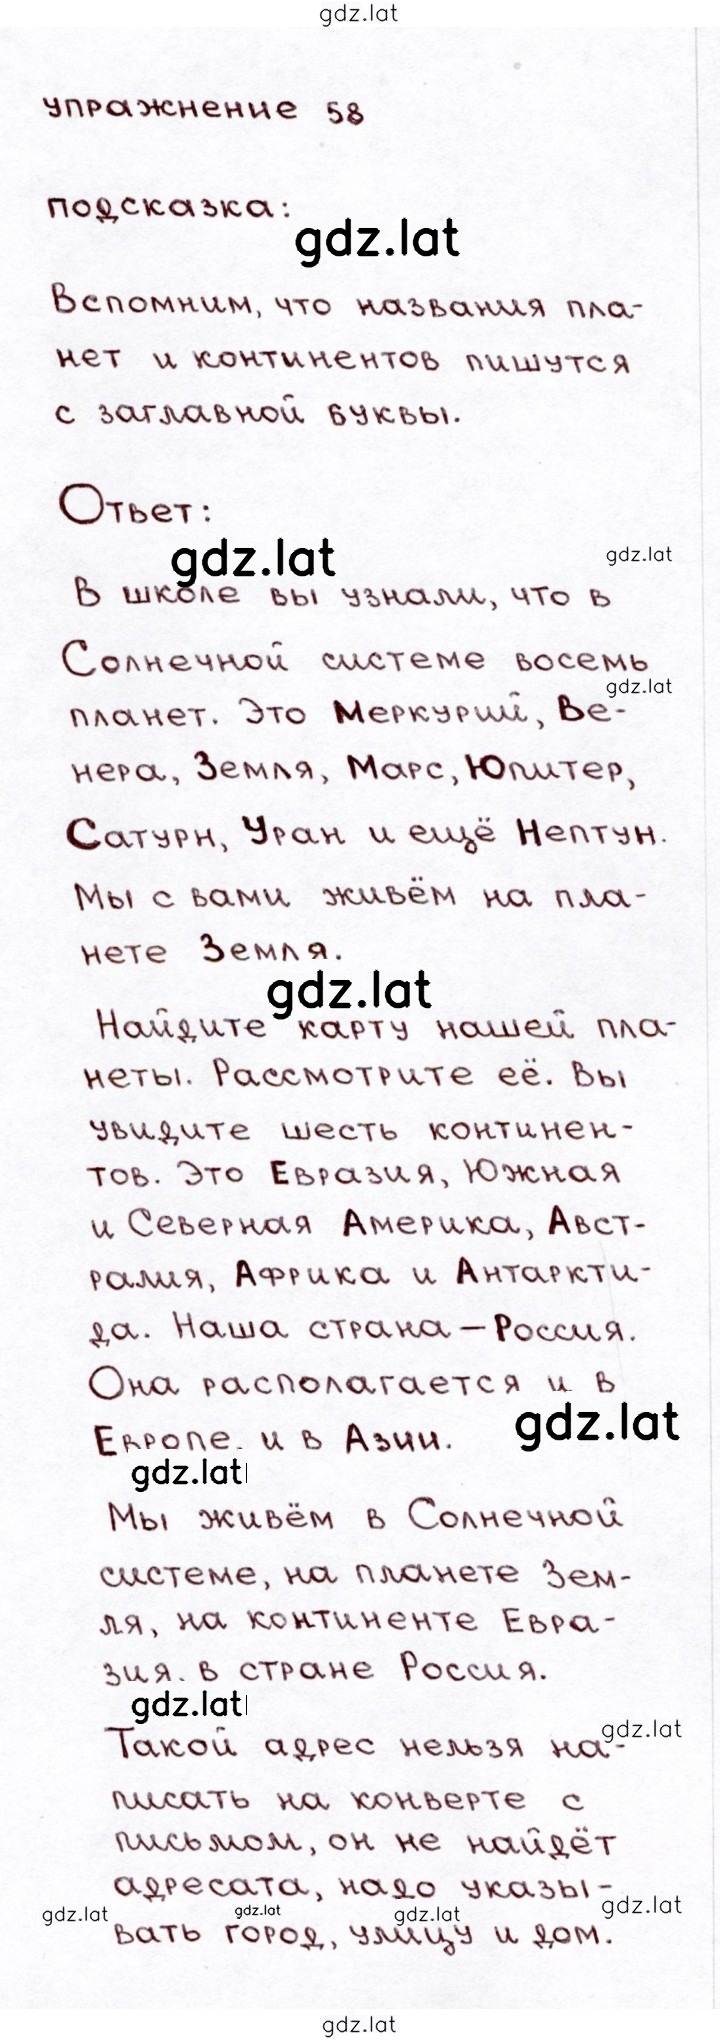 gdz.lat
упражнение 58
подсказка:
gdz.lat
Вспомним, что названия пла-
нет и континентов пишутся
с заглавной буквы.
Ответ:
gdz.lat
gdz.lat
В школе вы узнали, что в
Солнечной системе восемь
gdz.lat
планет. Это Меркурий, Ве-
нера, Земля, Марс, Юпитер,
Сатурн, Уран и ещё Нептун.
Мы с вами живём на пла-
нете Земля.
gdz.lat
Найдите карту нашей пла-
неты. Рассмотрите её. Вы
увидите шесть континен-
тов. Это Евразия, Южная
и Северная Америка, Авст-
ралия, Африка и Антаркти-
да. Наша страна – Россия.
Она располагается и в
gdz.lat
Европе, и в Азии.
gdz.lat
Мы живём в Солнечной
системе, на планете Зем-
ля, на континенте Евра-
зия, в стране Россия.
gdz.lat
gdz.lat
Такой адрес нельзя на-
писать на конверте с
письмом, он не найдёт
адресата, надо указы-
gdz.lat
gdz.lat
gdz.lat
gdz.lat
вать город, улицу и дом.
gdz.lat